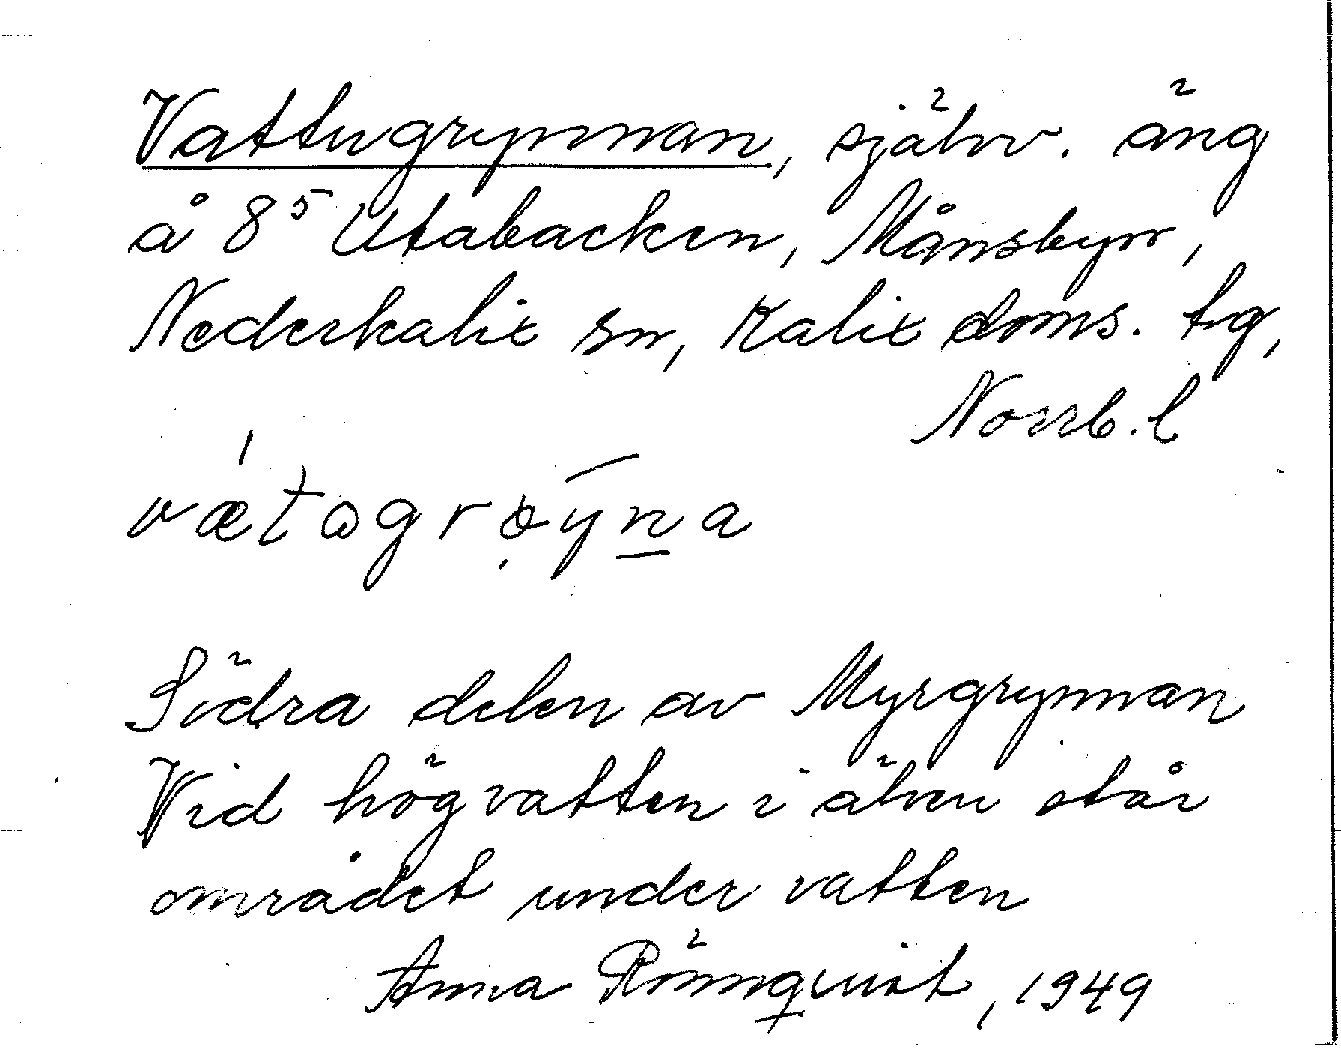 Vattugrynnan, självv. äng
å 8⁵ Utabacken, Månsbyn,
Nederkalix sn, Kalix doms. tg,
Norrb. l
vætωgrøýn̲a
Södra delen av Myrgrynnan
Vid högvatten i älven står
området under vatten
Anna Rönnquist, 1949